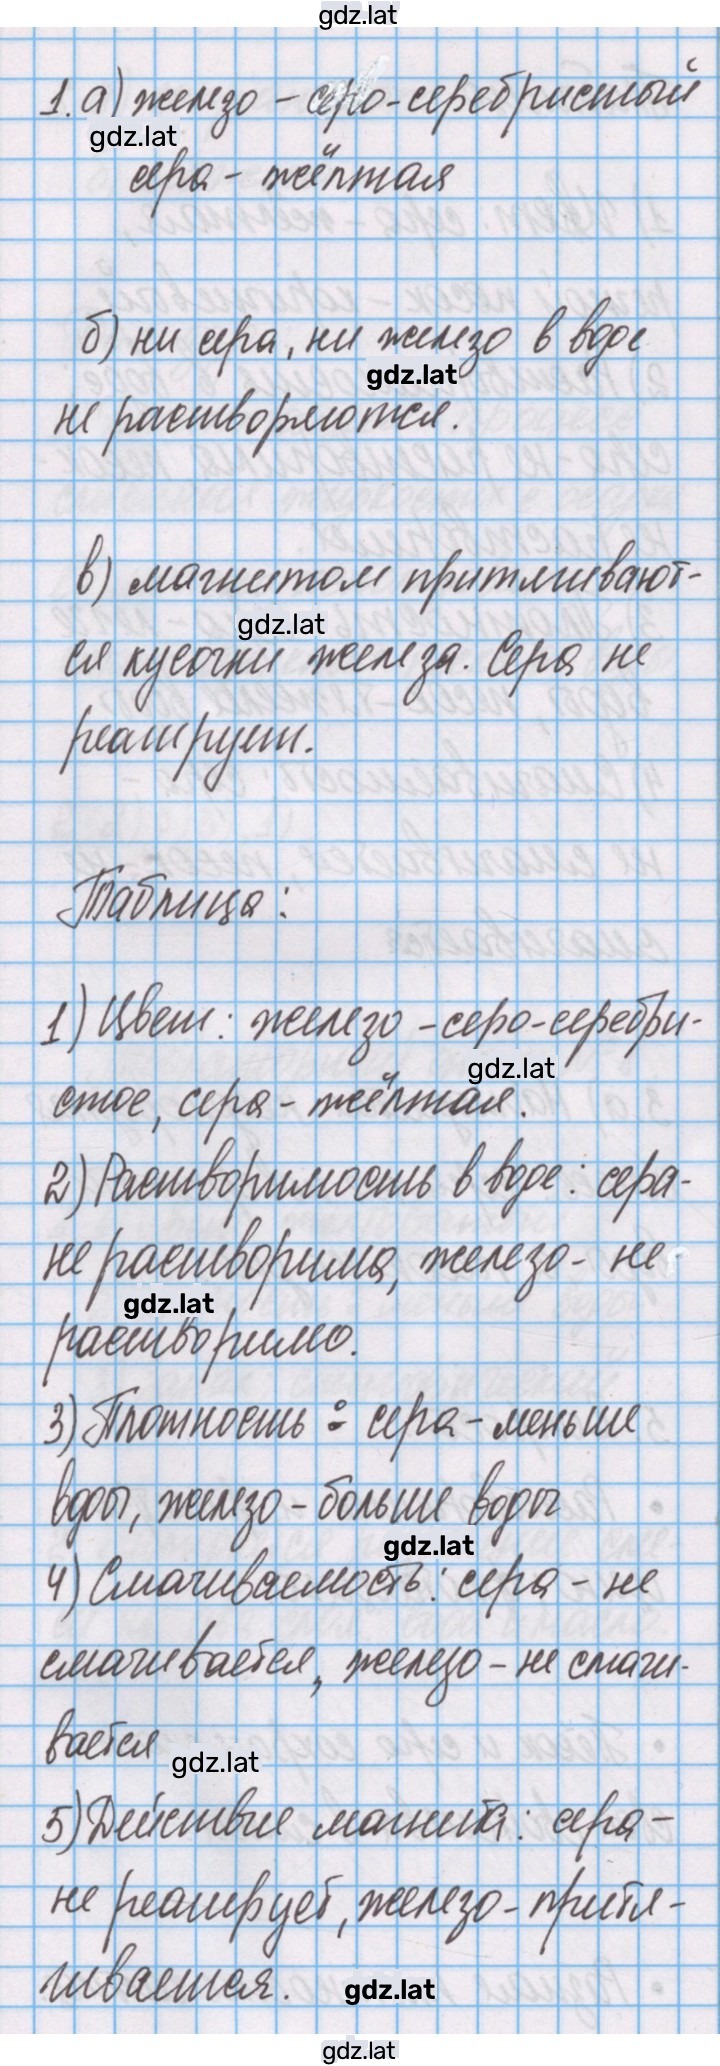 gdz.lat
1. а) железо - серо-серебристый
gdz.lat
сера - жёлтая
б) ни сера, ни железо в воде
gdz.lat
не растворяются.
в) магнитом притягивают-
gdz.lat
ся кусочки железа. Сера не
реагирует.
Таблица:
1) Цвет: железо - серо-серебри-
gdz.lat
стое, сера - жёлтая.
2) Растворимость в воде: сера-
не растворима, железо - не
gdz.lat
растворимо.
3) Плотность: сера - меньше
воды, железо - больше воды
gdz.lat
4) Смачиваемость: сера - не
смачивается, железо - не смачи-
вается
gdz.lat
5) Действие магнита: сера -
не реагирует, железо - притя-
гивается.
gdz.lat
gdz.lat